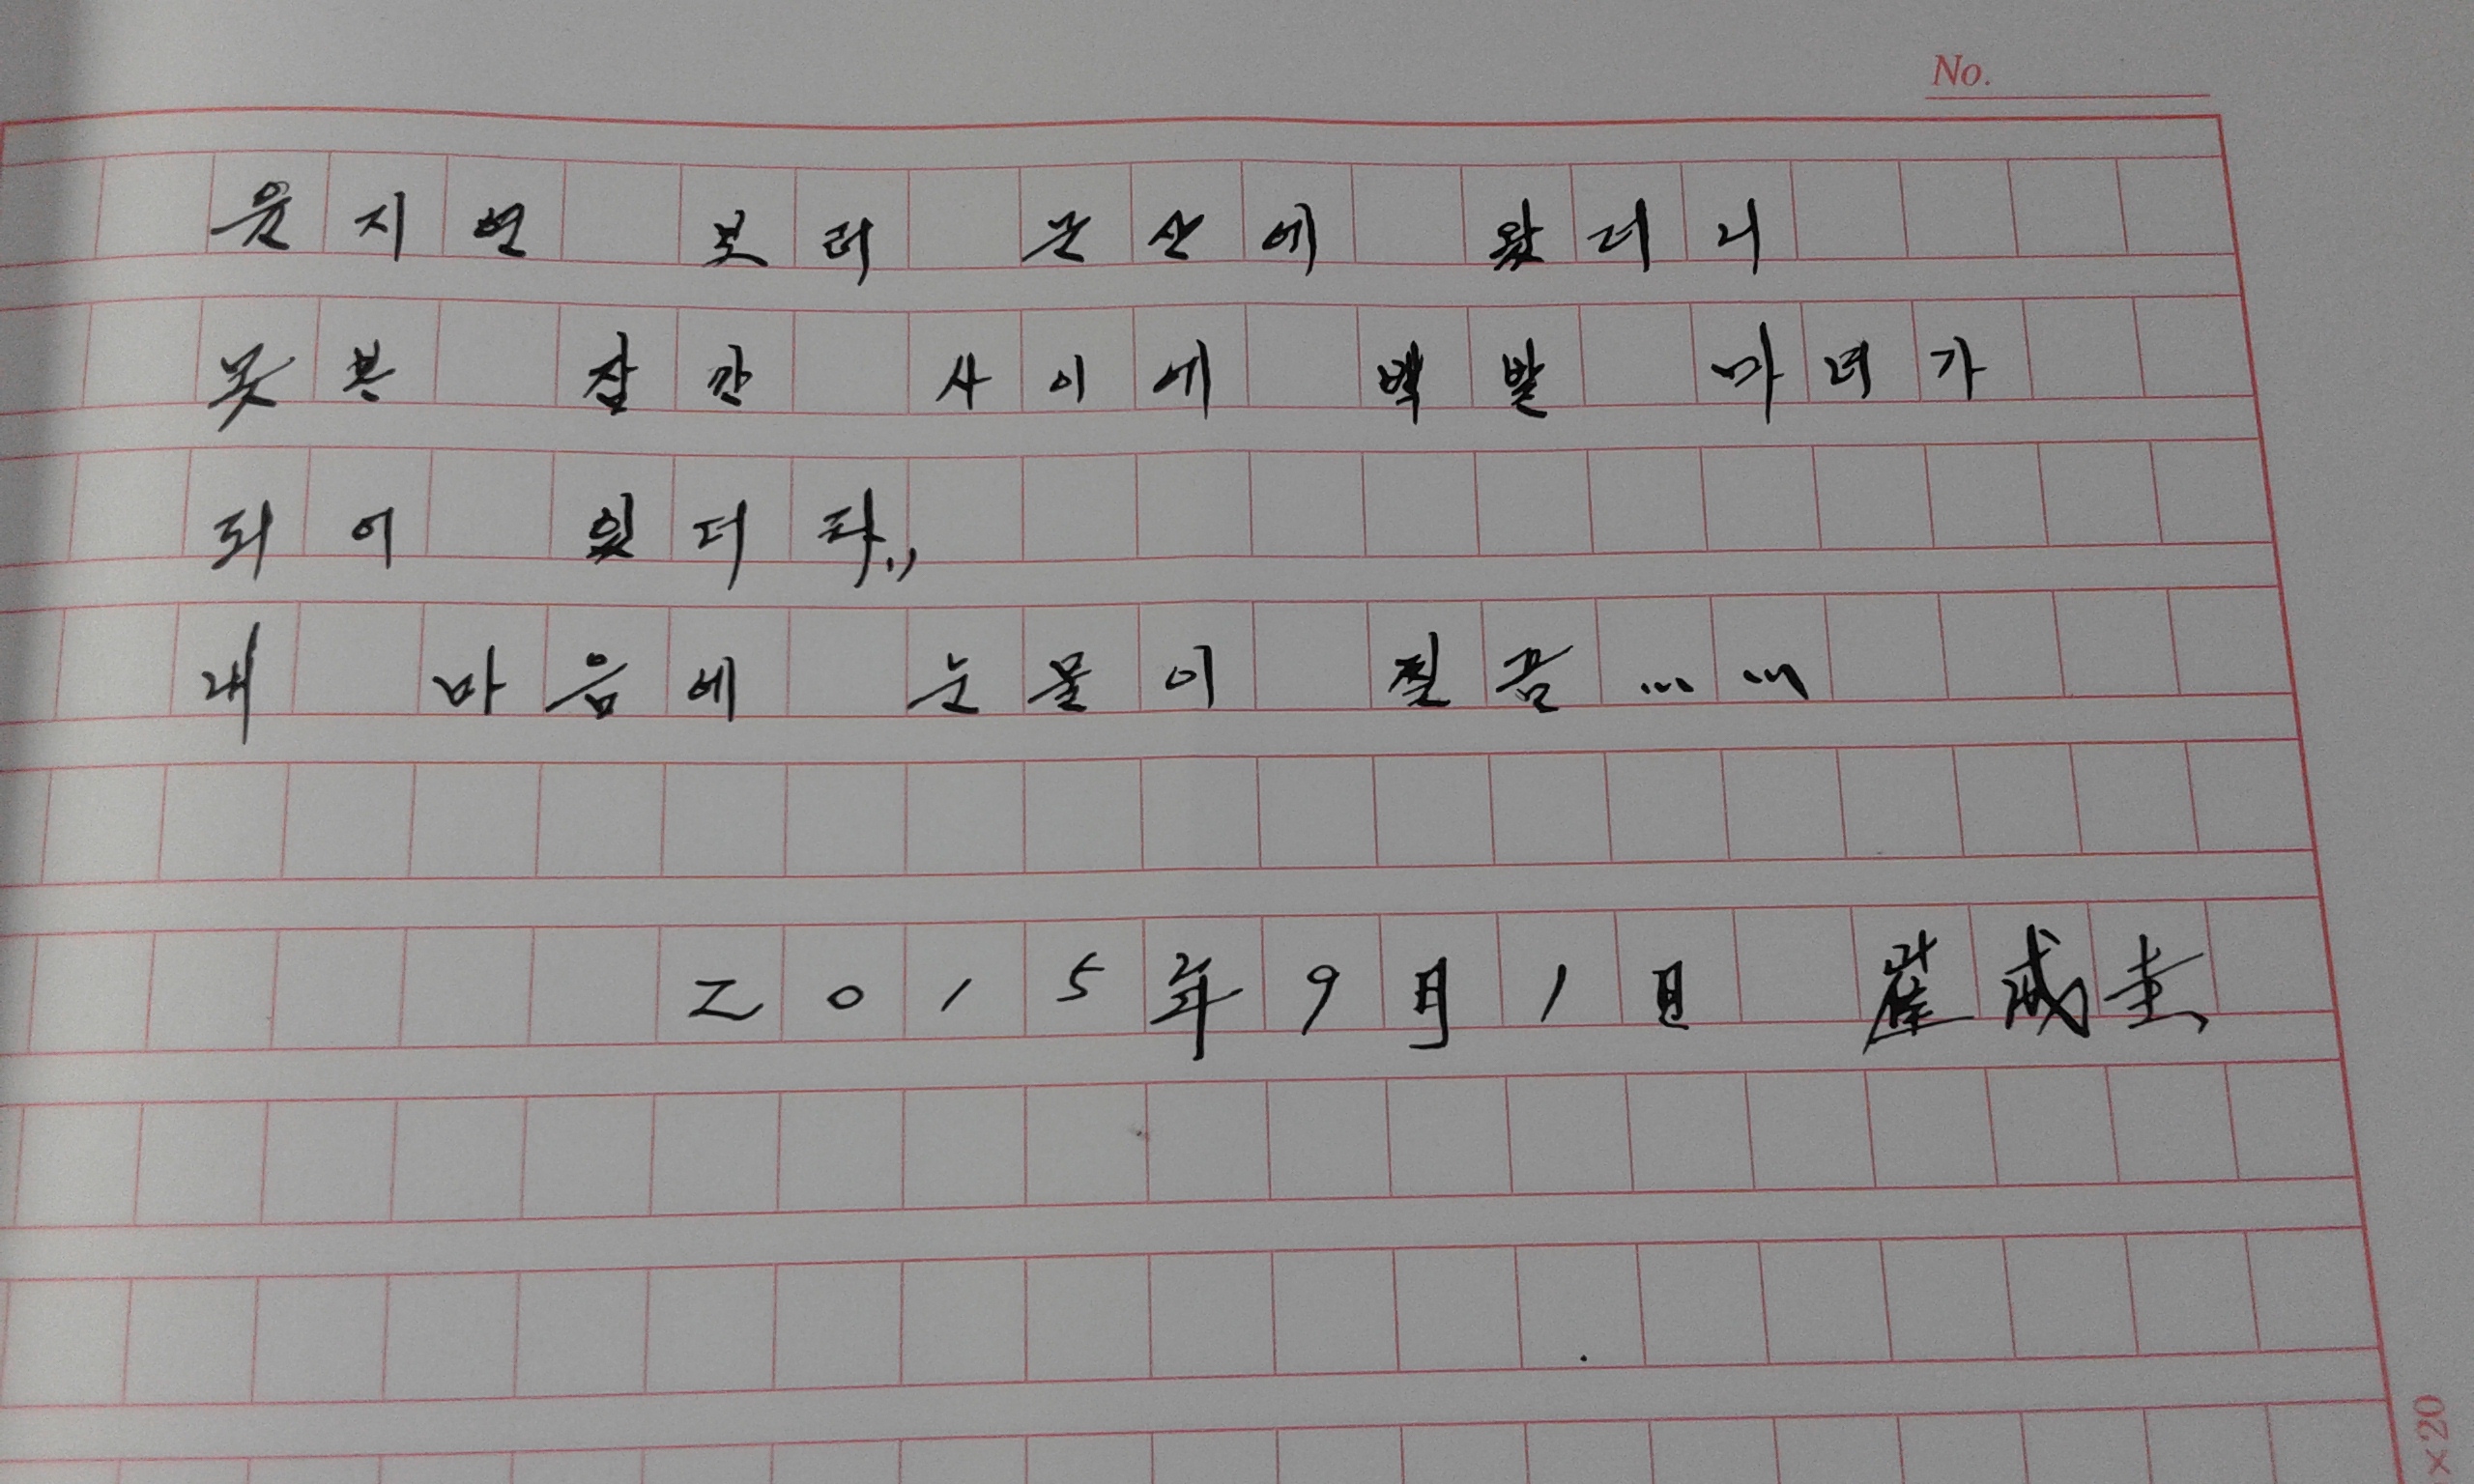 No.
윤지연 보러 군산에 왔더니
못본 잠간 사이에 백발 마녀가
되어 있더라.,
내 마음에 눈물이 찔끔……
2015年9月1日 崔成圭
×20